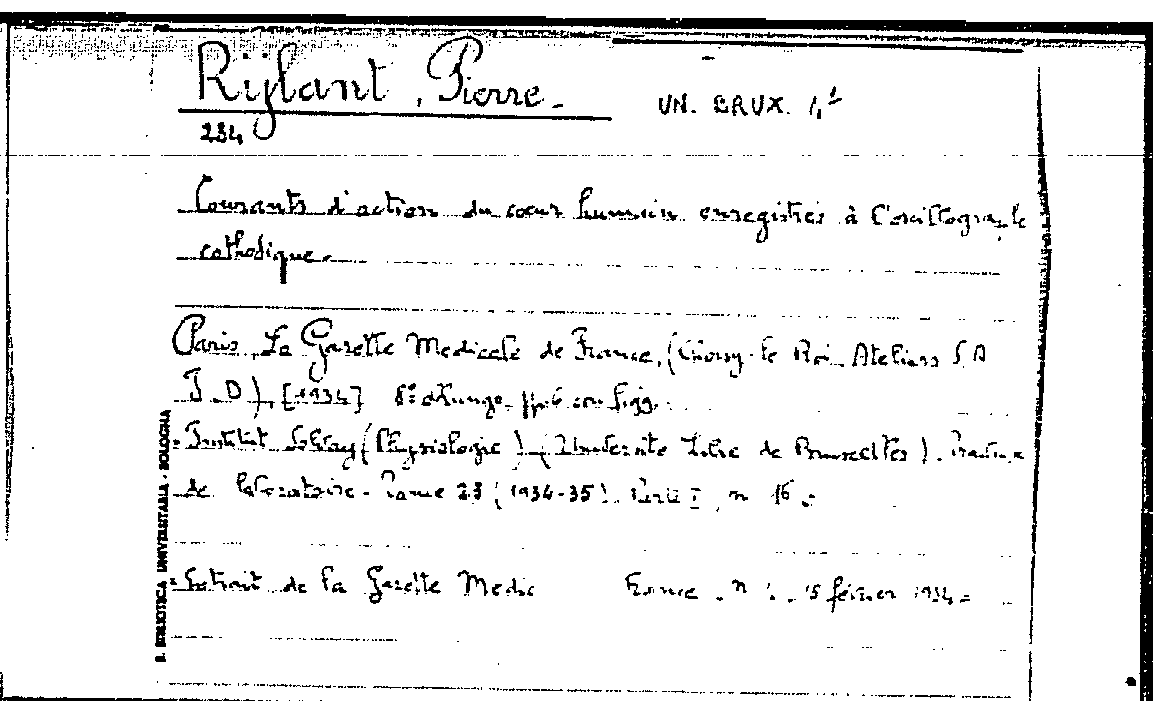 Rijlant, Pierre.
UN. BRUX. 1,1
234
Courants d'action du cœur humain enregistrés à l'oscillographe
cathodique.
Paris, La Gazette Medicale de France, (Choisy-le Roi Ateliers S A
I. D), [1934] 8º pp. 6 con figg.
= Institut Solvay (Physiologie) (Université Libre de Bruxelles). Travaux
de laboratoire - Tome 23 (1934-35). Partie I, n 16 =
= Extrait de la Gazette Medic France. n . 15 février 1934 =
B. BIBLIOTECA UNIVERSITARIA - BOLOGNA